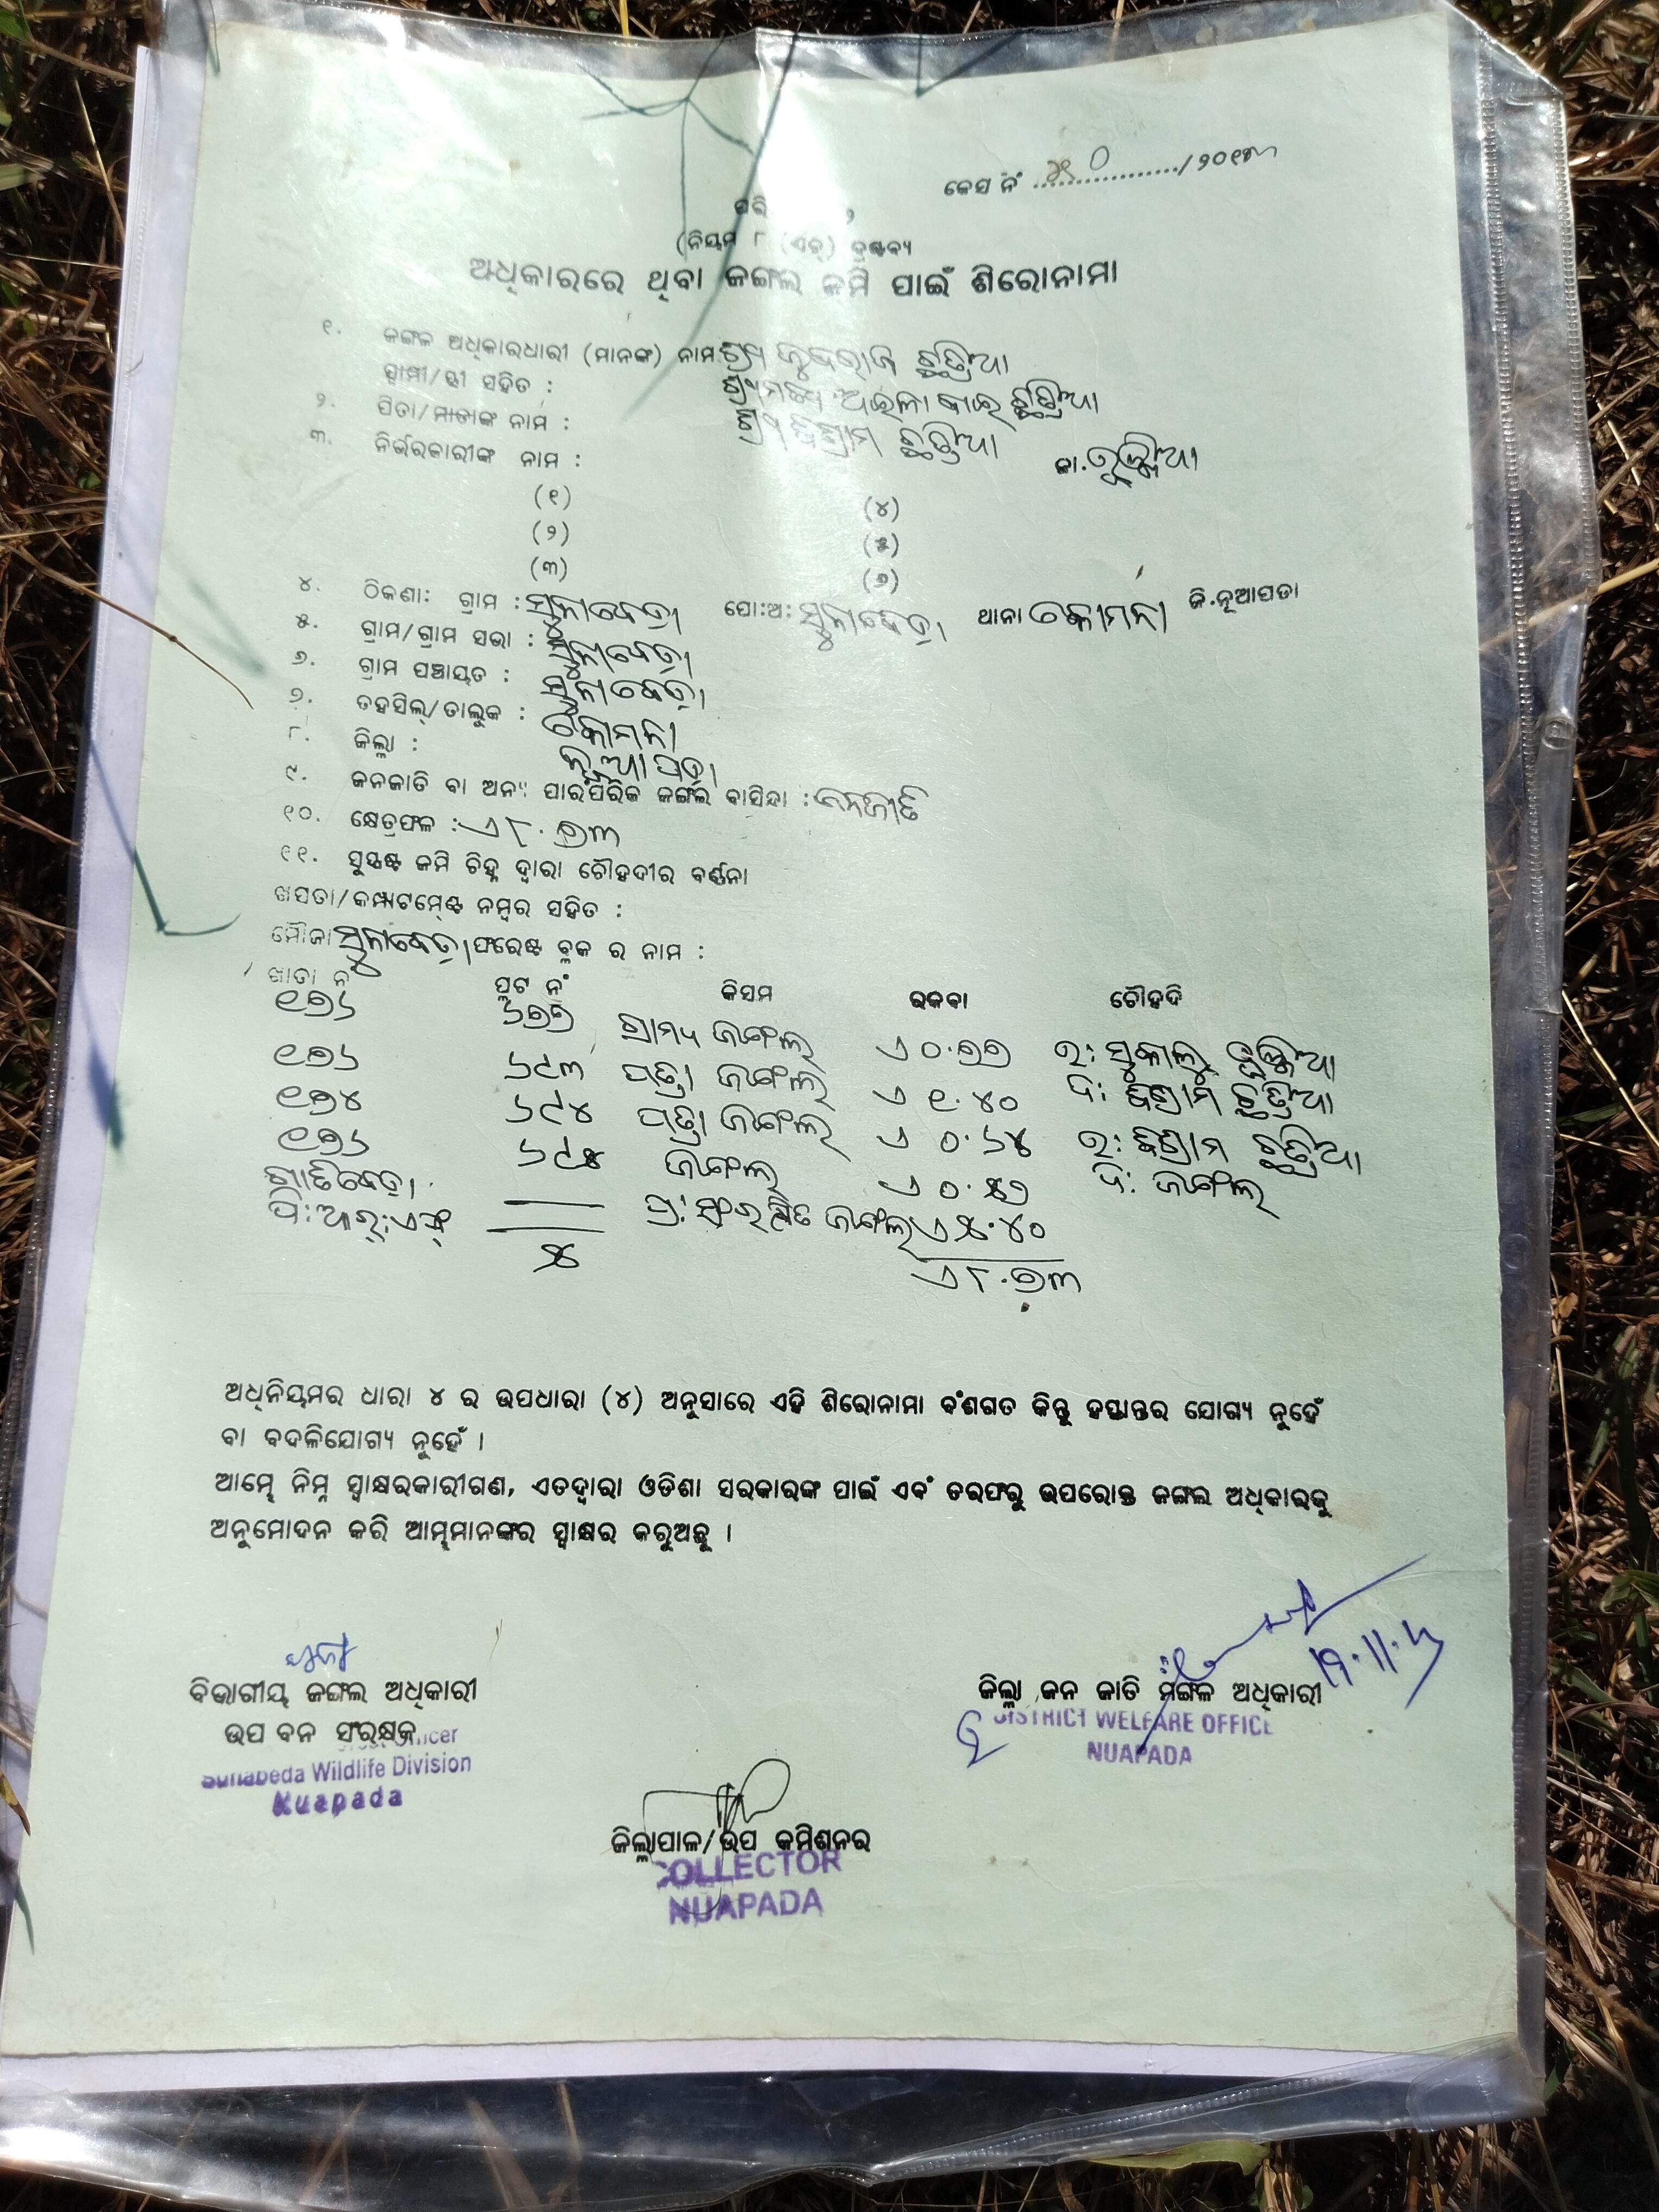 କେସ ନଂ ................../୨୦୧୩
(ନିୟମ ୮ (ଏଚ୍) ଦ୍ରଷ୍ଟବ୍ୟ
ଅଧିକାରରେ ଥିବା ଜଙ୍ଗଲ ଜମି ପାଇଁ ଶିରୋନାମା
୧. ଜଙ୍ଗଲ ଅଧିକାରଧାରୀ (ମାନଙ୍କ) ନାମ: ଶ୍ରୀ ଛତ୍ରିଆ
ସ୍ବାମୀ/ସ୍ତ୍ରୀ ସହିତ : ଶ୍ରୀମତୀ ଛତ୍ରିଆ
୨. ପିତା/ମାତାଙ୍କ ନାମ : ଶ୍ରୀ ଛତ୍ରିଆ
୩. ନିର୍ଭରକାରୀଙ୍କ ନାମ : ଜା. ଭୁଞ୍ଜିଆ
(୧) (୪)
(୨) (୫)
(୩) (୬)
୪. ଠିକଣା: ଗ୍ରାମ : ସୁନାବେଡ଼ା ପୋ:ଅ: ସୁନାବେଡ଼ା ଥାନା କୋମନା ଜି.ନୂଆପଡା
୫. ଗ୍ରାମ/ଗ୍ରାମ ସଭା : ସୁନାବେଡ଼ା
୬. ଗ୍ରାମ ପଞ୍ଚାୟତ : ସୁନାବେଡ଼ା
୭. ତହସିଲ୍/ତାଲୁକ : କୋମନା
୮. ଜିଲ୍ଲା : ନୂଆପଡ଼ା
୯. ଜନଜାତି ବା ଅନ୍ୟ ପାରମ୍ପରିକ ଜଙ୍ଗଲ ବାସିନ୍ଦା : ଜନଜାତି
୧୦. କ୍ଷେତ୍ରଫଳ : ଏ ୮.୭୩
୧୧. ସୁସ୍ପଷ୍ଟ ଜମି ଚିହ୍ନ ଦ୍ୱାରା ଚୌହଦୀର ବର୍ଣ୍ଣନା
ଖସଡା/କମ୍ପାଟମେଣ୍ଟ ନମ୍ବର ସହିତ :
ମୌଜା ସୁନାବେଡ଼ା ଫରେଷ୍ଟ ବ୍ଲକ ର ନାମ :
ଖାତା ନଂ ପ୍ଲଟ ନଂ କିସମ ରକବା ଚୌହଦି
୧୭୬ ୬୭୭ ଗ୍ରାମ୍ୟ ଜଙ୍ଗଲ ଏ ୦.୭୭ ଉ: ସୁକାଲୁ ଭୁଞ୍ଜିଆ
୧୭୬ ୬୯୩ ପତ୍ରା ଜଙ୍ଗଲ ଏ ୧.୪୦ ଦ: ଛତ୍ରିଆ
୧୭୪ ୬୯୪ ପତ୍ରା ଜଙ୍ଗଲ ଏ ୦.୬୪ ଛତ୍ରିଆ
୧୭୬ ୬୯୫ ଜଙ୍ଗଲ ଏ ୦.୫୨ ଜଙ୍ଗଲ
ପି:ଆର୍:ଏଫ୍ ପ୍ର: ସଂରକ୍ଷିତ ଜଙ୍ଗଲ ଏ ୫.୪୦
୫ ଏ ୮.୭୩
ଅଧିନିୟମର ଧାରା ୪ ର ଉପଧାରା (୪) ଅନୁସାରେ ଏହି ଶିରୋନାମା ବଂଶଗତ କିନ୍ତୁ ହସ୍ତାନ୍ତର ଯୋଗ୍ୟ ନୁହେଁ
ବା ବଦଳିଯୋଗ୍ୟ ନୁହେଁ ।
ଆମ୍ଭେ ନିମ୍ନ ସ୍ୱାକ୍ଷରକାରୀଗଣ, ଏତଦ୍ୱାରା ଓଡିଶା ସରକାରଙ୍କ ପାଇଁ ଏବଂ ତରଫରୁ ଉପରୋକ୍ତ ଜଙ୍ଗଲ ଅଧିକାରକୁ
ଅନୁମୋଦନ କରି ଆମ୍ଭମାନଙ୍କର ସ୍ୱାକ୍ଷର କରୁଅଛୁ ।
ବିଭାଗୀୟ ଜଙ୍ଗଲ ଅଧିକାରୀ
ଉପ ବନ ସଂରକ୍ଷକ
Sunabeda Wildlife Division
Nuapada
ଜିଲ୍ଲା ଜନ ଜାତି ମଙ୍ଗଳ ଅଧିକାରୀ
DISTRICT WELFARE OFFICE
NUAPADA
ଜିଲ୍ଲାପାଳ/ଉପ କମିଶନର
COLLECTOR
NUAPADA